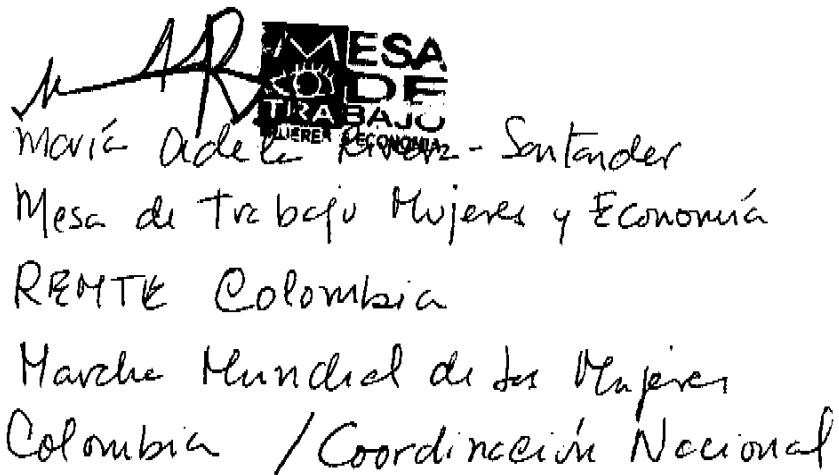 MESA
DE
TRABAJO
MUJERES Y ECONOMIA
María Adela - Santander
Mesa de Trabajo Mujeres y Economía
REMTE Colombia
Marcha Mundial de las Mujeres
Colombia / Coordinación Nacional